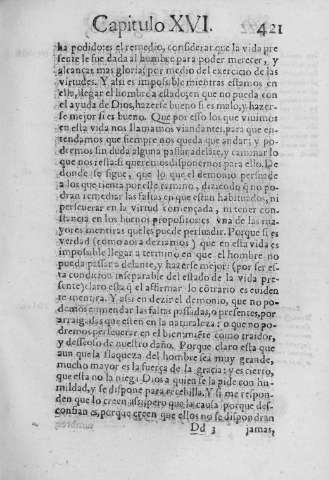 Capitulo XVI. 421
ha podido: es el remedio, considerar que la vida pre
sente le fue dada al hombre para poder merecer, y
alcançar mas gloria, por medio del exercicio de las
virtudes. Y assi es impossible mientras estamos en
ella, llegar el hombre a estado, en que no pueda con
el ayuda de Dios, hazerse bueno si es malo, y hazer-
se mejor si es bueno. Que por esso los que viuimos
en esta vida nos llamamos viandantes, para que en-
tendamos que siempre nos queda que andar; y po-
dremos sin duda alguna passar adelante, y caminar lo
que nos resta: si queremos disponernos para ello. De
donde se sigue, que lo que el demonio persuade
a los que tienta por este camino, diziendo q̃ no po-
dran remediar las faltas en que estan habituados, ni
perseuerar en la virtud començada, ni tener con-
stancia en los buenos propositos: es vna de las ma-
yores mentiras que les puede persuadir. Porque si es
verdad (como aora deziamos) que en esta vida es
impossible llegar a termino en que el hombre no
pueda passar adelante, y hazerse mejor: (por ser es-
ta condicion inseparable del estado de la vida pre-
sente) claro esta q̃ el affirmar lo cõtrario es euiden
te mentira. Y assi en dezir el demonio, que no po-
demos enmendar las faltas passadas, o presentes, por
arraigadas que esten en la naturaleza: o que no po-
dremos perseuerar en el bien, miente como traidor,
y desseoso de nuestro daño. Porque claro esta que
aun que la flaqueza del hombre sea muy grande,
mucho mayor es la fuerça de la gracia: y es cierto,
que esta no la niega Dios a quien se la pide con hu-
mildad, y se dispone para recebilla. Y si me respon-
den que lo creen assi, pero que la causa porque des-
confian es, porque creen que ellos no se dispondran
Dd 3 jamas,